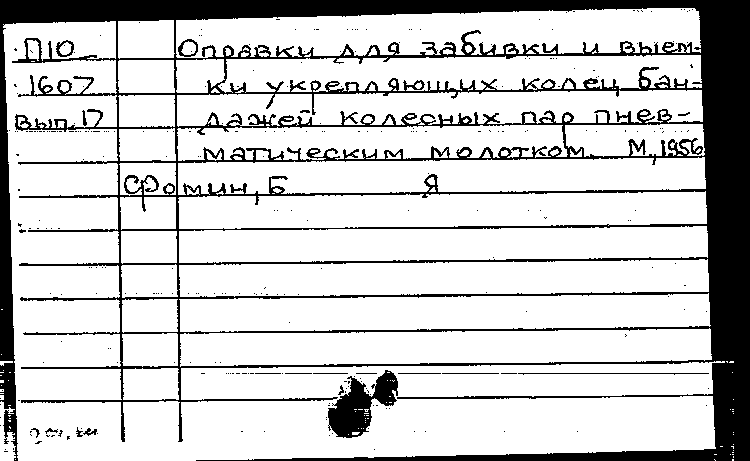 П10 Оправки для забивки и выем-
1607 ки укрепляющих колец бан-
Вып.17 дажей колесных пар пнев-
матическим молотком. М.,1956
Фомин, Б Я